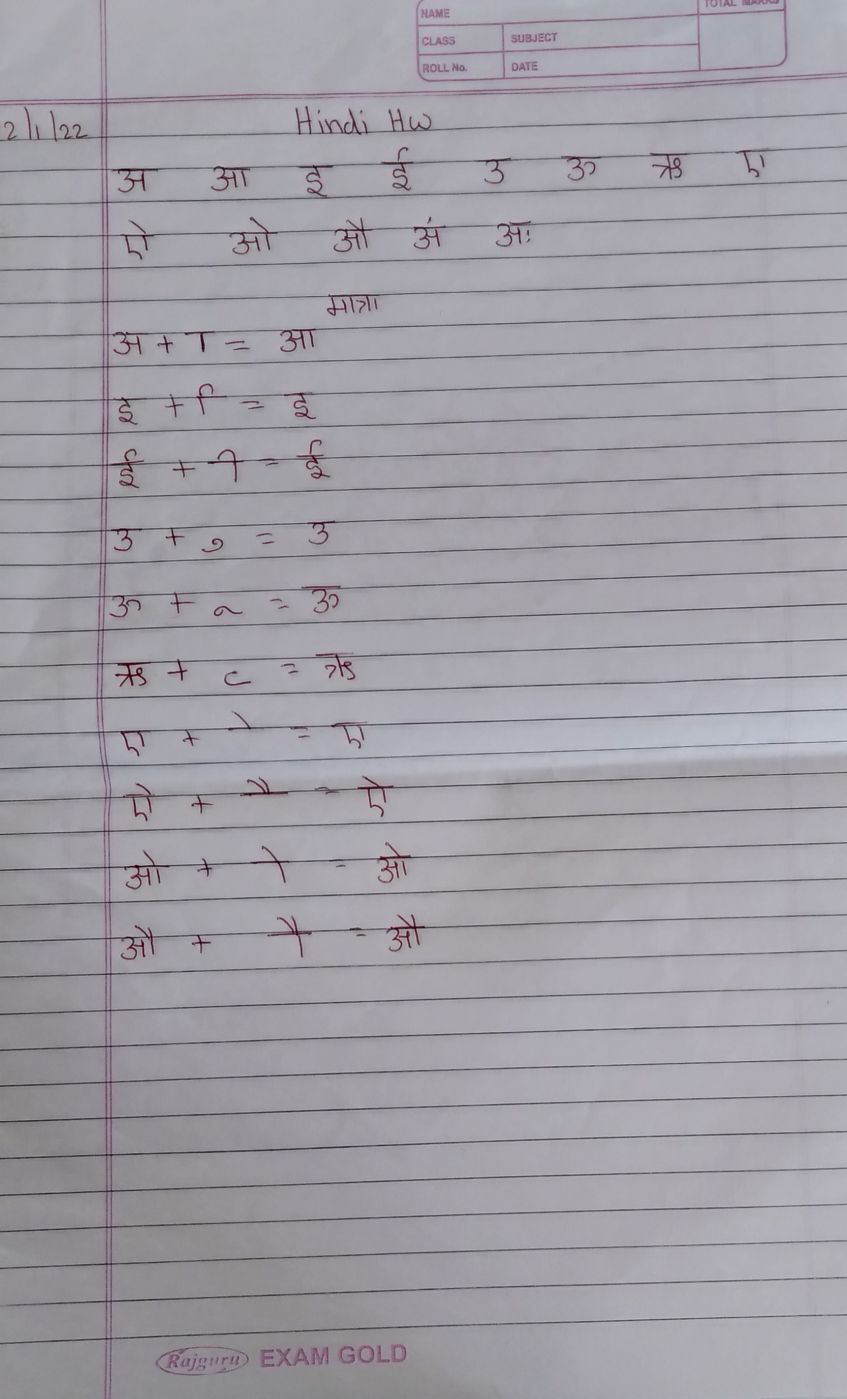 NAME
CLASS SUBJECT
ROLL No. DATE
2/1/22 Hindi HW
अ आ इ ई उ ऊ ऋ ए
ऐ ओ औ अं अः
मात्रा
अ + ा = आ
इ + ि = इ
ई + ी = ई
उ + ु = उ
ऊ + ू = ऊ
ऋ + ृ = ऋ
ए + े = ए
ऐ + ै = ऐ
ओ + ो = ओ
औ + ौ = औ
Rajguru EXAM GOLD